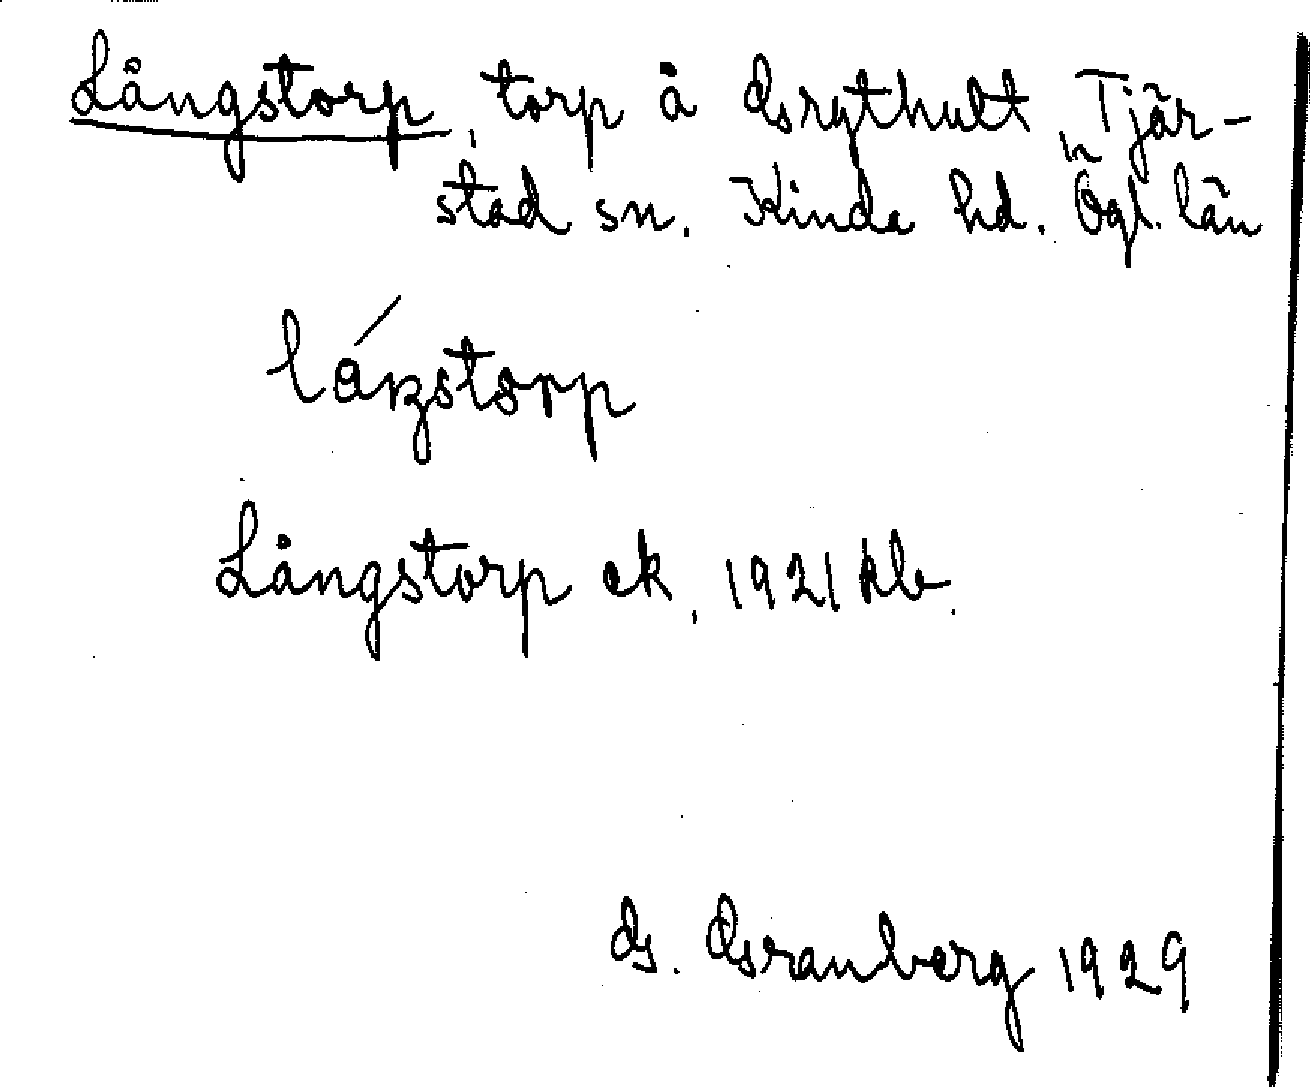 Långstorp, torp å Grythult, Tjär-
stad sn. Kinda hd. Ögl. län
låŋstorp
Långstorp ek, 1921 kb.
G. Granberg 1929